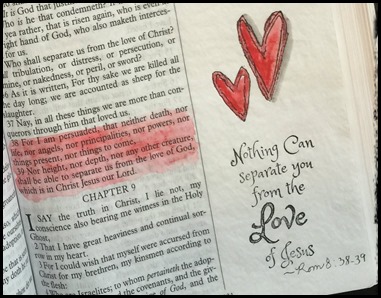 It is God that just
Who is he that condemneth? I
yea rather, that is risen again, who is even
right hand of God, who also maketh interces-
for us.
Who shall separate us from the love of Christ?
tribulation, or distress, or persecution, or
mine, or nakedness, or peril, or sword?
36 As it is written, For thy sake we are killed all
the day long; we are accounted as sheep for the
slaughter.
37 Nay, in all these things we are more than con-
querors through him that loved us.
38 For I am persuaded, that neither death, nor
life, nor angels, nor principalities, nor powers, nor
things present, nor things to come,
39 Nor height, nor depth, nor any other creature,
shall be able to separate us from the love of God,
which is in Christ Jesus our Lord.
CHAPTER 9
I SAY the truth in Christ, I lie not, my
conscience also bearing me witness in the Holy
Ghost,
2 That I have great heaviness and continual sor-
row in my heart.
3 For I could wish that myself were accursed from
Christ for my brethren, my kinsmen according to
the flesh:
Who are Israelites; to whom pertaineth the adop-
the covenants, and the giv-
of God, and the
Nothing Can
separate you
from the
Love
of Jesus
~Rom 8:38-39